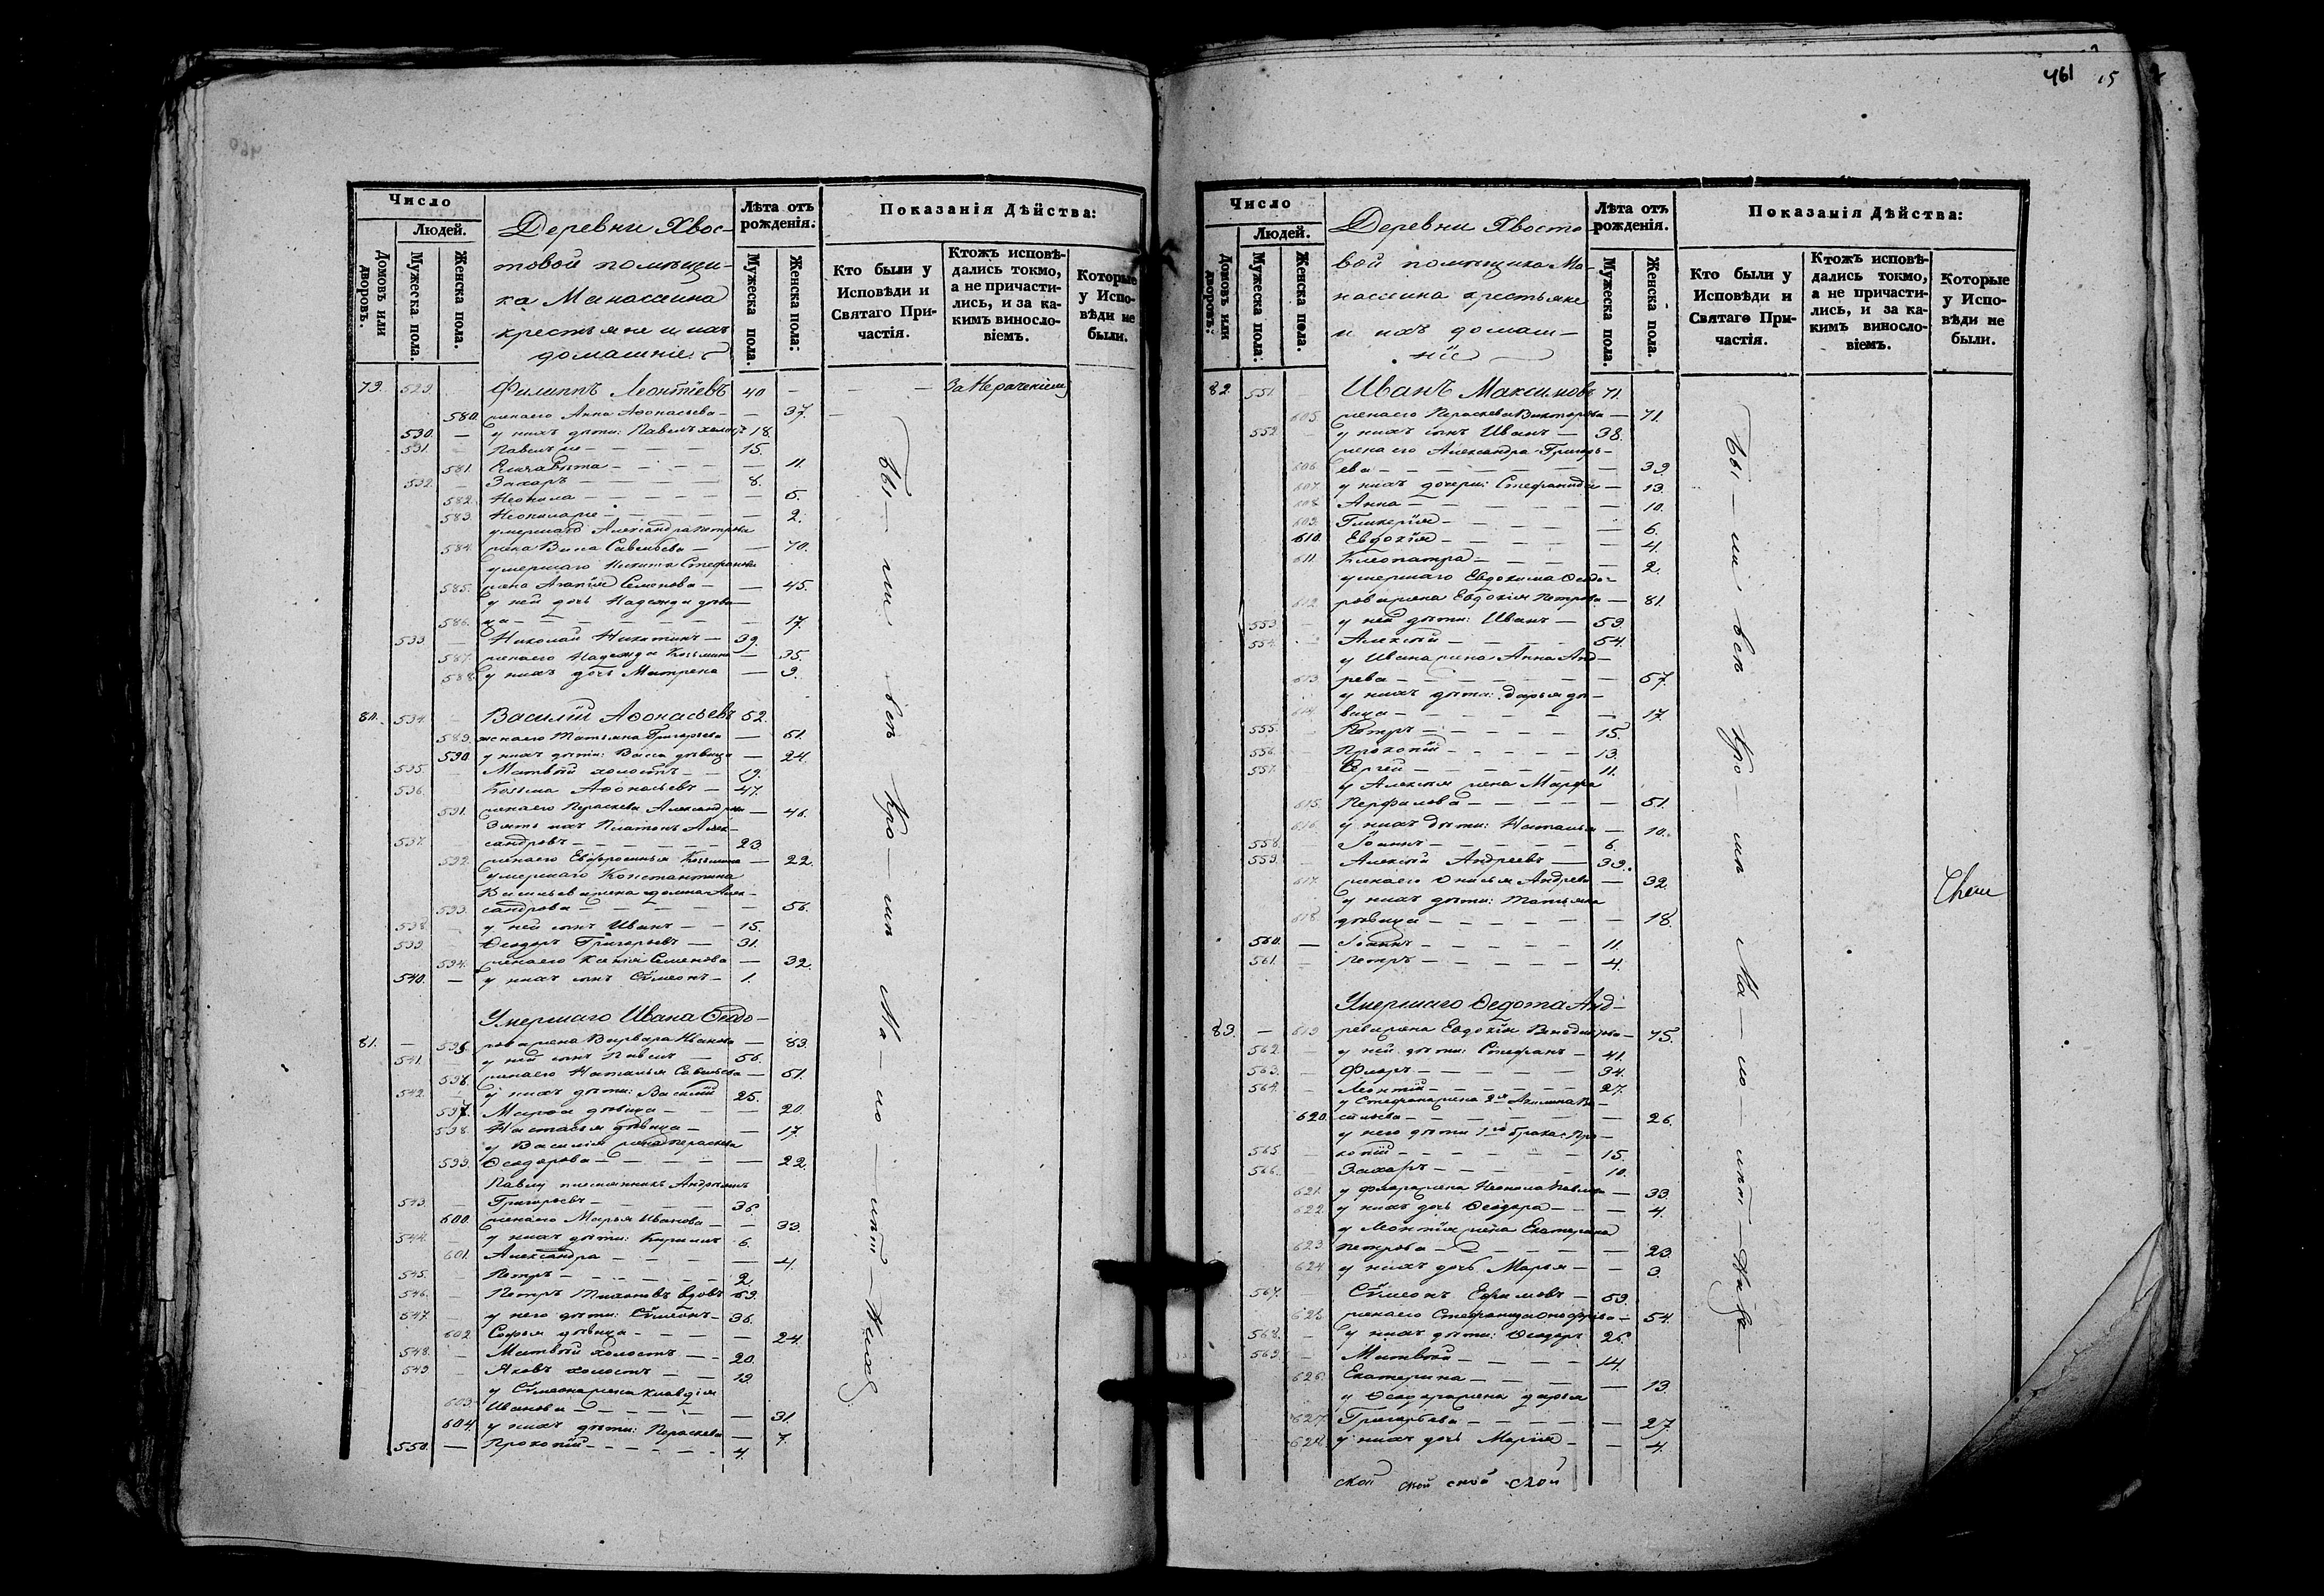 461 15
Число
Людей.
Домовъ или дворовъ.
Мужеска пола.
Женска пола.
Деревни Хвос-
товой помѣщи-
ка Манассеина
крестьяне и ихъ
домашніе
Лѣта отъ рожденія:
Мужеска пола
Женска пола:
Показанія Дѣйства:
Кто были у Исповѣди и Святаго При-частія.
Ктожъ исповѣ-дались токмо, а не причасти-лись, и за ка-кимъ винословіемъ.
Которые у Испо-вѣди не были.
79. 529. Филиппъ Леонтіевъ 40 — За Нераченіемъ
580. жена его Анна Афонасьева — 37.
530. — у нихъ дѣти: Павелъ холостъ 18.
531. Павелъ же — 15.
581. Елизавѣта — 11.
532. — Захаръ — 8.
582. Неонила — 5.
583. Неонила же — 2.
умершаго Александра Петрова
584. жена Васса Савельева — 70.
умершаго Никита Стефанова
585. жена Агапія Семенова — 45.
у ней дочь Надежда дѣви-
586. ца — 17.
533 Николай Никитинъ — 39.
587. жена его Надежда Козьмина — 35.
588. у нихъ дочь Матрена — 9.
80. 534. Василій Афонасьевъ 52.
589. жена его Татьяна Григорьева — 51.
590. у нихъ дѣти: Васса дѣвица — 24.
535. Матвѣй холостъ — 19.
536. Козьма Афонасьевъ — 47.
591. жена его Параскева Александрова — 46.
Зять ихъ Платонъ Алек-
537. сандровъ — 23.
592. жена его Евфросинья Козьмина — 22.
умершаго Константина
Васильева жена Домна Алек-
593. сандрова — 56.
538 у ней сынъ Иванъ — 15.
539 Ѳеодоръ Григорьевъ — 31.
594. жена его Ксенія Семенова — 32.
540. — у нихъ сынъ Сѵмеонъ — 1.
Умершаго Ивана Ѳеодо-
81. — 595. рова жена Варвара Иванова — 83.
541. у ней сынъ Павелъ — 56.
596. жена его Наталья Савельева — 51.
542. у нихъ дѣти: Василій 25.
597. Марфа дѣвица — 20.
598. Настасья дѣвица — 17.
у Василія жена Параскева
599. Ѳеодорова — 22.
Павлу племянникъ Андреянъ
543. Григорьевъ — 36.
600. жена его Марья Иванова — 33.
544. — у нихъ дѣти: Кириллъ 6.
601. Александра — 4.
545. Петръ — 2.
546. Петръ Тихоновъ вдовъ 59.
547. у него дѣти: Сѵмеонъ — 36.
602 Софья дѣвица — 24.
548. — Матвѣй холостъ — 20.
549 Яковъ холостъ — 19.
у Сѵмеона жена Клавдія
603. Иванова — 31.
604. у нихъ дѣти: Параскева — 7.
550. — Прокопій — 4.
Бы — ли всѣ Кро — мѣ Ма — ло — лѣт — нихъ
Число
Людей.
Домовъ или дворовъ:
Мужеска пола:
Женска пола.
Деревни Хвосто
вой помѣщика Ма-
нассеина крестьяне
и ихъ домаш-
ніе
Лѣта отъ рожденія.
Мужеска пола.
Женска пола.
Показанія Дѣйства:
Кто были у Исповѣди и Святаго При-частія.
Ктожъ исповѣ-дались токмо, а не причасти-лись, и за ка-кимъ винословіемъ.
Которые у Испо-вѣди не были.
82. 551. Иванъ Максимовъ 71.
605. жена его Параскева Викторова — 71.
552 у нихъ сынъ Иванъ — 38.
жена его Александра Григорь-
606. ева — 39.
607. у нихъ дочери: Стефанида — 13.
608 Анна — 10.
609. Гликерія — 6.
610. Евдокія — 4.
611. Клеопатра — 2.
умершаго Евдокима Ѳеодо-
612. рова жена Евдокія Петрова — 81.
553 у ней дѣти: Иванъ — 59.
554. Алексѣй — 54.
у Ивана жена Анна Анд-
613 рева — 57.
у нихъ дѣти: Дарья дѣ-
614. вица — 17.
555. Петръ — 15.
556. Прокопій — 13.
557. Сергей — 11.
у Алексѣя жена Марфа
615. Перфилова — 51.
616. у нихъ дѣти: Наталья — 10.
558. Іоаннъ — 6.
559. Алексѣй Андреевъ — 39.
617. жена его Анисья Андреева — 32.
у нихъ дѣти: Татьяна
618. дѣвица — 18.
560. — Іоаннъ — 11.
561. — Петръ — 4.
Умершаго Ѳедота Анд-
83. — 619 реева жена Евдокія Венедиктова — 75.
562. у ней дѣти: Стефанъ — 41.
563. Флоръ — 34.
564. Леонтій — 27.
у Стефана жена 2я Акилина Ва-
620. сильева — 26.
у него дѣти 1го брака: Про-
565 копій — 15.
566. Захаръ — 10.
621. у Флора жена Неонила Павлова — 33.
622. у нихъ дочь Ѳеодора — 4.
у Леонтія жена Екатерина
623. Петрова — 23.
624. у нихъ дочь Марья — 3.
567. Сѵмеонъ Ефимовъ — 59.
625. жена его Стефанида Онофріева — 54.
568. у нихъ дѣти: Ѳеодоръ 26.
569. Матвѣй — 14.
626. Екатерина — 13.
у Ѳеодора жена Дарья
627. Григорьева — 27.
628. у нихъ дочь Марія — 4.
Бы — ли всѣ Кро — мѣ Ма — ло — лѣт — нихъ
ской ской ской ской